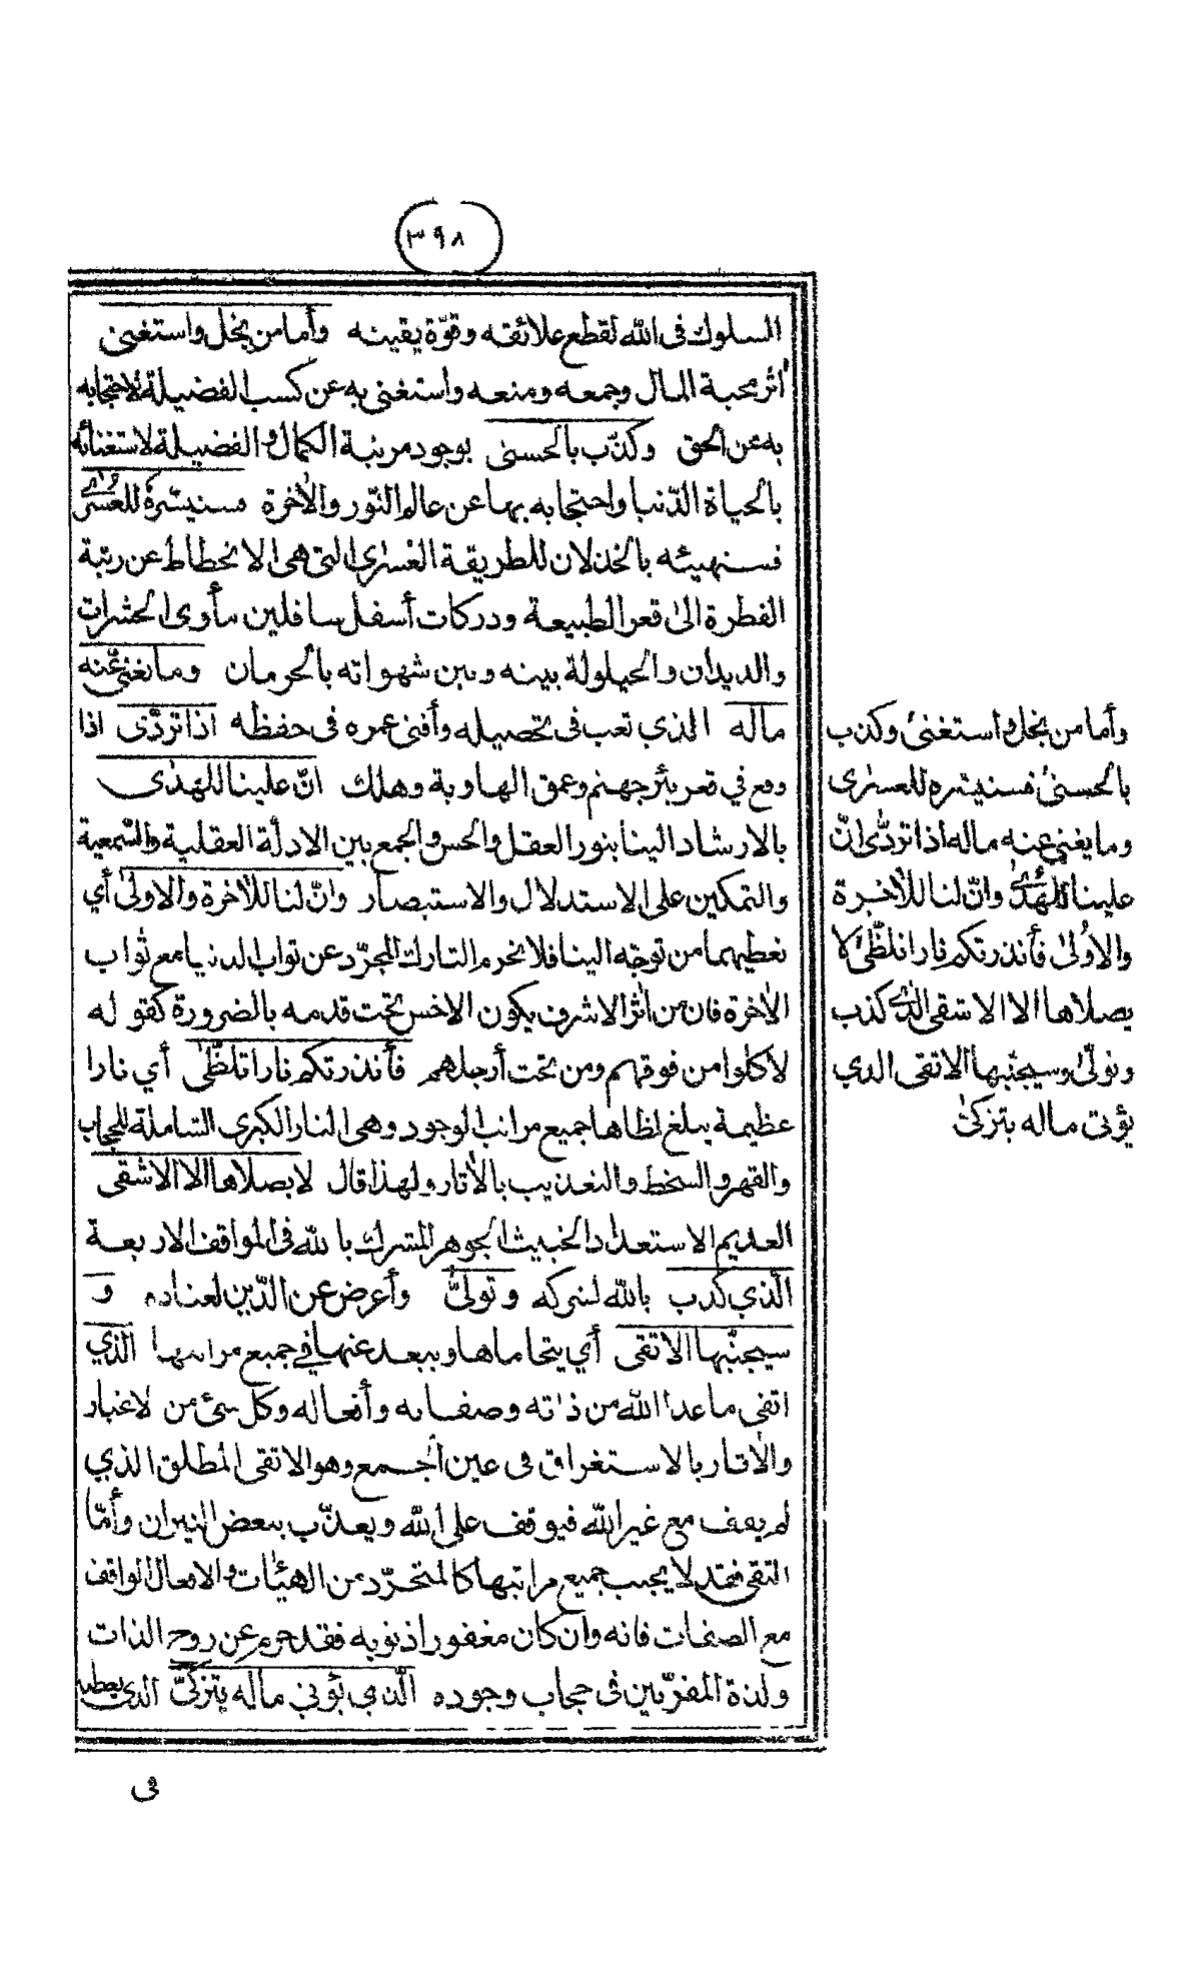 ٣٩٨
السلوك في الله لقطع علائقه وقوّة يقينه وأما من بخل واستغنى
آثر محبة المال وجمعه ومنعه واستغنى به عن كسب الفضيلة لاحتجابه
به عن الحق وكذّب بالحسنى بوجود مرتبة الكمال والفضيلة لاستغنائه
بالحياة الدّنيا واحتجابه بها عن عالم النّور والآخرة فسنيسّره للعسرى
فسنهيئه بالخذلان للطريقة العسرى التي هي الانحطاط عن رتبة
الفطرة الى قعر الطبيعة ودركات أسفل سافلين مأوى الحشرات
والديدان والحيلولة بينه وبين شهواته بالحرمان وما يغني عنه
ماله الذي تعب في تحصيله وأفنى عمره في حفظه اذا تردّى اذا
وقع في قعر بئر جهنم وعمق الهاوية وهلك انّ علينا للهدى
بالارشاد الينا بنور العقل والحس والجمع بين الادلّة العقلية والسّمعية
والتمكين على الاستدلال والاستبصار وانّ لنا للآخرة والاولى أي
نعطيهما من توجّه الينا فلا نحرم التارك المجرّد عن ثواب الدنيا مع ثواب
الآخرة فان من آثر الاشرف يكون الاخس تحت قدمه بالضرورة كقوله
لأكلوا من فوقهم ومن تحت أرجلهم فأنذرتكم نارا تلظّى أي نارا
عظيمة يبلغ لظاها جميع مراتب الوجود وهي النار الكبرى الشاملة للحجاب
والقهر والسخط والتعذيب بالآثار ولهذا قال لا يصلاها الا الاشقى
العديم الاستعداد الخبيث الجوهر المشرك بالله في المواقف الاربعة
الّذي كذب بالله لشركه وتولىّ وأعرض عن الدّين لعناده و
سيجنّبها الاتقى أي يتحاماها ويبعد عنها في جميع مراتبها الذي
اتقى ما عدا الله من ذاته وصفاته وأفعاله وكل شئ من لاغيار
والآثار بالاستغراق في عين الجمع وهو الاتقى المطلق الذي
لم يقف مع غير الله فيوقف على الله ويعذّب ببعض النيران وأمّا
التقي فقد لا يجنب جميع مراتبها كالمتجرّد من الهيئات والافعال الواقف
مع الصفات فانه وان كان مغفورا ذنوبه فقد حرم عن روح الذات
ولذة المقرّبين في حجاب وجوده الّذي يؤتي ماله يتزكّى الذي يعطيه
في
وأما من بخل واستغنى وكذب
بالحسنى فسنيسّره للعسرى
وما يغني عنه ماله اذا تردّى انّ
علينا للهدى وانّ لنا للآخرة
والاولى فأنذرتكم نارا تلظّى لا
يصلاها الا الاشقى الذي كذب
وتولّى وسيجنّبها الاتقى الذي
يؤتي ماله يتزكّى